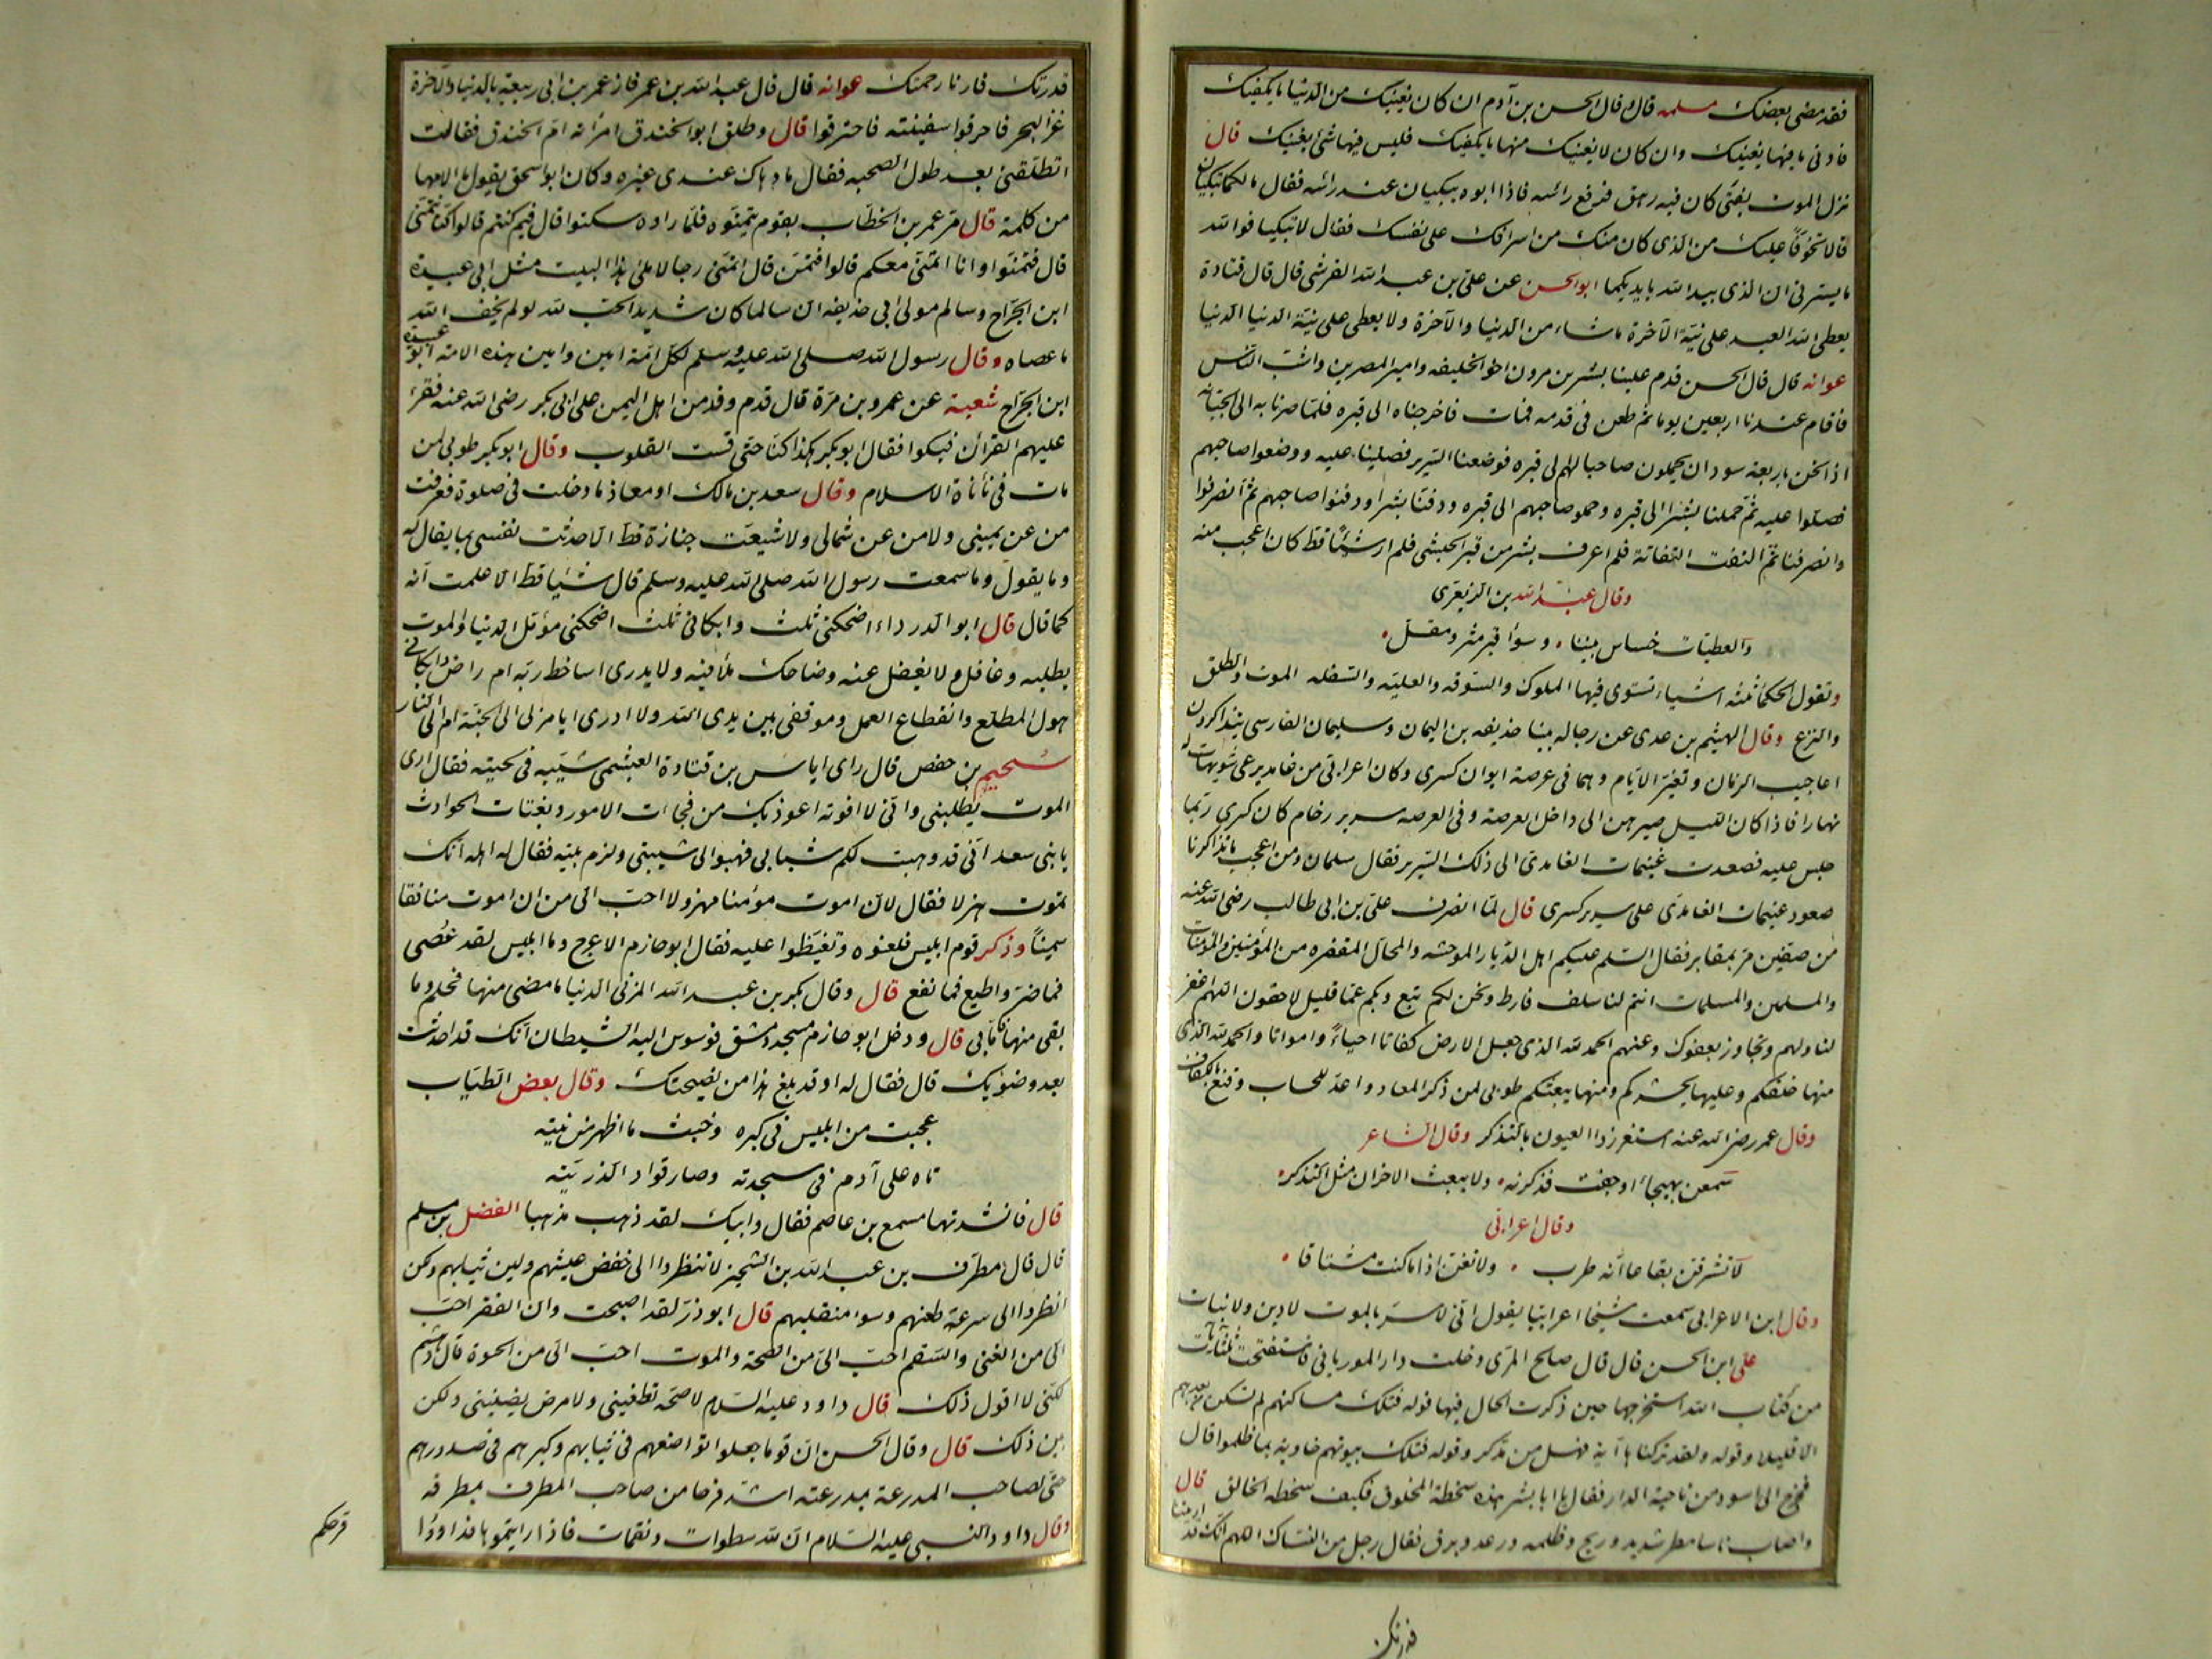 فقد مضى بعضك مسلمه قال وقال الحسن بن آدم ان كان يغنيك من الدنيا ما يكفيك
فادنى ما فيها يغنيك وان كان لا يغنيك منها ما يكفيك فليس فيها شئ يغنيك قال
نزل الموت بفتى كان فيه رهق فرفع رأسه فاذا ابوه يبكيان عند رأسه فقال مالكما تبكيان
قالا تخوفا عليك من الذى كان منك من اسرافك على نفسك فقال لا تبكيا فوالله
ما يسرنى ان الذى بيد الله بايديكما ابو الحسن عن على بن عبد الله القرشى قال قال قتادة
يعطى الله العبد على نية الآخرة ما شاء من الدنيا والآخرة ولا يعطى على نية الدنيا الا الدنيا
عوانه قال قال الحسن قدم علينا بشر بن مرون اخو الخليفه وامير المصرين واشب الناس
فاقام عندنا اربعين يوما ثم طعن فى قدمه فمات فاخرجناه الى قبره فلما صرنا به الى الجبانه
اذا نحن باربعة سودان يحملون صاحبا لهم الى قبره فوضعنا السرير فصلينا عليه ووضعوا صاحبهم
فصلوا عليه ثم حملنا بشرا الى قبره وحملوا صاحبهم الى قبره ودفنا بشرا ودفنوا صاحبهم ثم انصرفوا
وانصرفنا ثم التفت التفاتة فلم اعرف بشر من قبر الحبشى فلم ار شئًا قط كان اعجب منه
وقال عبد الله بن الزبعرى
والعطيات خساس بيننا • وسوأ قبر مثر ومقل •
وتقول الحكمأ ثلثه اشياء تستوى فيها الملوك والسوقه والعليه والسفله الموت والطلق
والنزع وقال الهيثم بن عدى عن رجاله بينا حذيفه بن اليمان وسليمان الفارسى يتذاكرون
اعاجيب الزمان وتغير الايام وهما فى عرصة ايوان كسرى وكان اعرابى من غامد يرعى شويهات له
نهارا فاذا كان الليل صيرهن الى داخل العرصة وفى العرصه سرير رخام كان كسرى ربما
جلس عليه فصعدت غنيمات الغامدى الى ذلك السرير فقال سلمان ومن اعجب ما تذاكرنا
صعود غنيمات الغامدى على سرير كسرى قال لما انصرف على بن ابى طالب رضى الله عنه
من صفين مر بمقابر فقال السلم عليكم اهل الديار الموحشه والمحال المقفره من المؤمنين والمؤمنات
والمسلمين والمسلمات انتم لنا سلف فارط ونحن لكم تبع وبكم عما قليل لاحقون اللهم اغفر
لنا ولهم وتجاوز بعفوك وعنهم الحمد لله الذى جعل الارض كفاتا احياءً وامواتا والحمد لله الذى
منها خلقكم وعليها يحشركم ومنها يبعثكم طوبى لمن ذكر المعاد واعد للحساب وقنع بالكفاف
وقال عمر رضى الله عنه استغزروا العيون بالتذكر وقال الشاعر
سمعن بهيجأ اوجفت فذكرنه • ولا يبعث الاحزان مثل التذكر •
وقال اعرابى
لا تشرفن يفاعا انه طرب • ولا تغن اذا ما كنت مشتاقا •
وقال ابن الاعرابى سمعت شيخا اعرابيا يقول انى لاسر بالموت لا دين ولا بنات
على ابن الحسن قال قال صالح المرى دخلت دار الموريانى فاستفتحت ثلث آيات
من كتاب الله استخرجها حين ذكرت الحال فيها قوله فتلك مساكنهم لم تسكن من بعدهم
الا قليلا وقوله ولقد تركناها آية فهل من مدكر وقوله فتلك بيوتهم خاوية بما ظلموا قال
فخرج الى اسود من ناحية الدار فقال يا ابا بشر هذه سخطة المخلوق فكيف سخطه الخالق قال
واصاب ناسا مطر شديد وريح وظلمه ورعد وبرق فقال رجل من النساك اللهم انك قد اريتنا
قدرتك
قدرتك فارنا رحمتك عوانه قال قال عبد الله بن عمر فاز عمر بن ابى ربيعة بالدنيا والآخرة
غزا البحر فاحرقوا سفينته فاحترقوا قال وطلق ابو الخندق امرأته ام الخندق فقالت
اتطلقنى بعد طول الصحبه فقال ما دهاك عندى غيره وكان ابو اسحق يقول ما الامها
من كلمة قال مر عمر بن الخطاب بقوم يتمنوه فلما راوه سكتوا قال فيم كنتم قالوا كنا نتمنى
قال فتمنوا وانا اتمنى معكم قالوا فتمن قال اتمنى رجالا ملئ هذا البيت مثل ابى عبيدة
ابن الجراح وسالم مولى ابى حذيفه ان سالما كان شديد الحب لله لو لم يخف الله
ما عصاه وقال رسول الله صلى الله عليه وسلم لكل امة امين وامين هذه الامة ابو عبيدة
ابن الجراح شعبة عن عمرو بن مرة قال قدم وفد من اهل اليمن على ابى بكر رضى الله عنه فقرئ
عليهم القرأن فبكوا فقال ابو بكر هكذا كنا حتى قست القلوب وقال ابو بكر طوبى لمن
مات فى نأنأة الاسلام وقال سعد بن مالك او معاذ ما دخلت فى صلوة فعرفت
من عن يمينى ولا من عن شمالى ولا شيعت جنازة قط الا حدثت نفسى بما يقال له
وما يقول وما سمعت رسول الله صلى الله عليه وسلم قال شيا قط الا علمت انه
كما قال قال ابو الدرداء اضحكنى ثلث وابكانى ثلث اضحكنى مؤمل الدنيا والموت
يطلبه وغافل ولا يغفل عنه وضاحك ملأ فيه ولا يدرى اساخط ربه ام راض وابكانى
هول المطلع وانقطاع العمل وموقفى بين يدى الله ولا ادرى ايامر لى الى الجنة ام الى النار
سحيم بن حفص قال راى اياس بن قتادة العبشمى شيبه فى لحيته فقال ارى
الموت يطلبنى وانى لا افوته اعوذ بك من فجاات الامور وبغتات الحوادث
يا بنى سعد انى قد وهبت لكم شبابى فهبوا لى شيبتى ولزم بيته فقال له اهله انك
تموت هزلا فقال لان اموت مومنا مهزولا احب الى من ان اموت منافقا
سمينا وذكر قوم ابليس فلعنوه وتغيظوا عليه فقال ابو حازم الاعرج وما ابليس لقد عُصى
فما ضر واطيع فما نفع قال وقال بكر بن عبد الله المزنى الدنيا ما مضى منها فحلم وما
بقى منها فأمانى قال ودخل ابو حازم مسجد دمشق فوسوس اليه الشيطان انك قد احدثت
بعد وضوئك قال فقال له اوقد بلغ هذا من نصيحتك وقال بعض الطياب
عجبت من ابليس فى كبره وخبث ما اظهر من نيته
تاه على آدم فى سجدته وصار قوادا لذريته
قال فانشدتها مسمع بن عاصم فقال وابيك لقد ذهب مذهبا الفضل بن مسلم
قال قال مطرف بن عبد الله بن الشخير لا تنظروا الى خفض عيشهم ولين ثيابهم ولكن
انظروا الى سرعة ظعنهم وسوا منقلبهم قال ابو ذر لقد اصبحت وان الفقر احب
الى من الغنى والسقم احب الى من الصحة والموت احب الى من الحيوة قال هشيم
لكنى لا اقول ذلك قال داود عليه السلام لا صحه تطغينى ولا مرض يضنينى ولكن
بين ذلك قال وقال الحسن ان قوما جعلوا تواضعهم فى ثيابهم وكبرهم فى صدورهم
حتى لصاحب المدرعة بمدرعته اشد فرحا من صاحب المطرف بمطرفه
وقال داود النبى عليه السلام ان لله سطوات ونقمات فاذا رايتموها فداووا
قرحكم